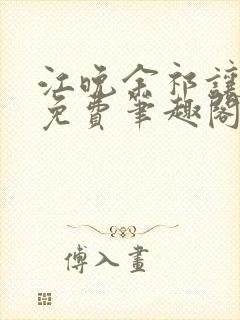 江晚余祁讓
免費筆趣閣
傅入畫